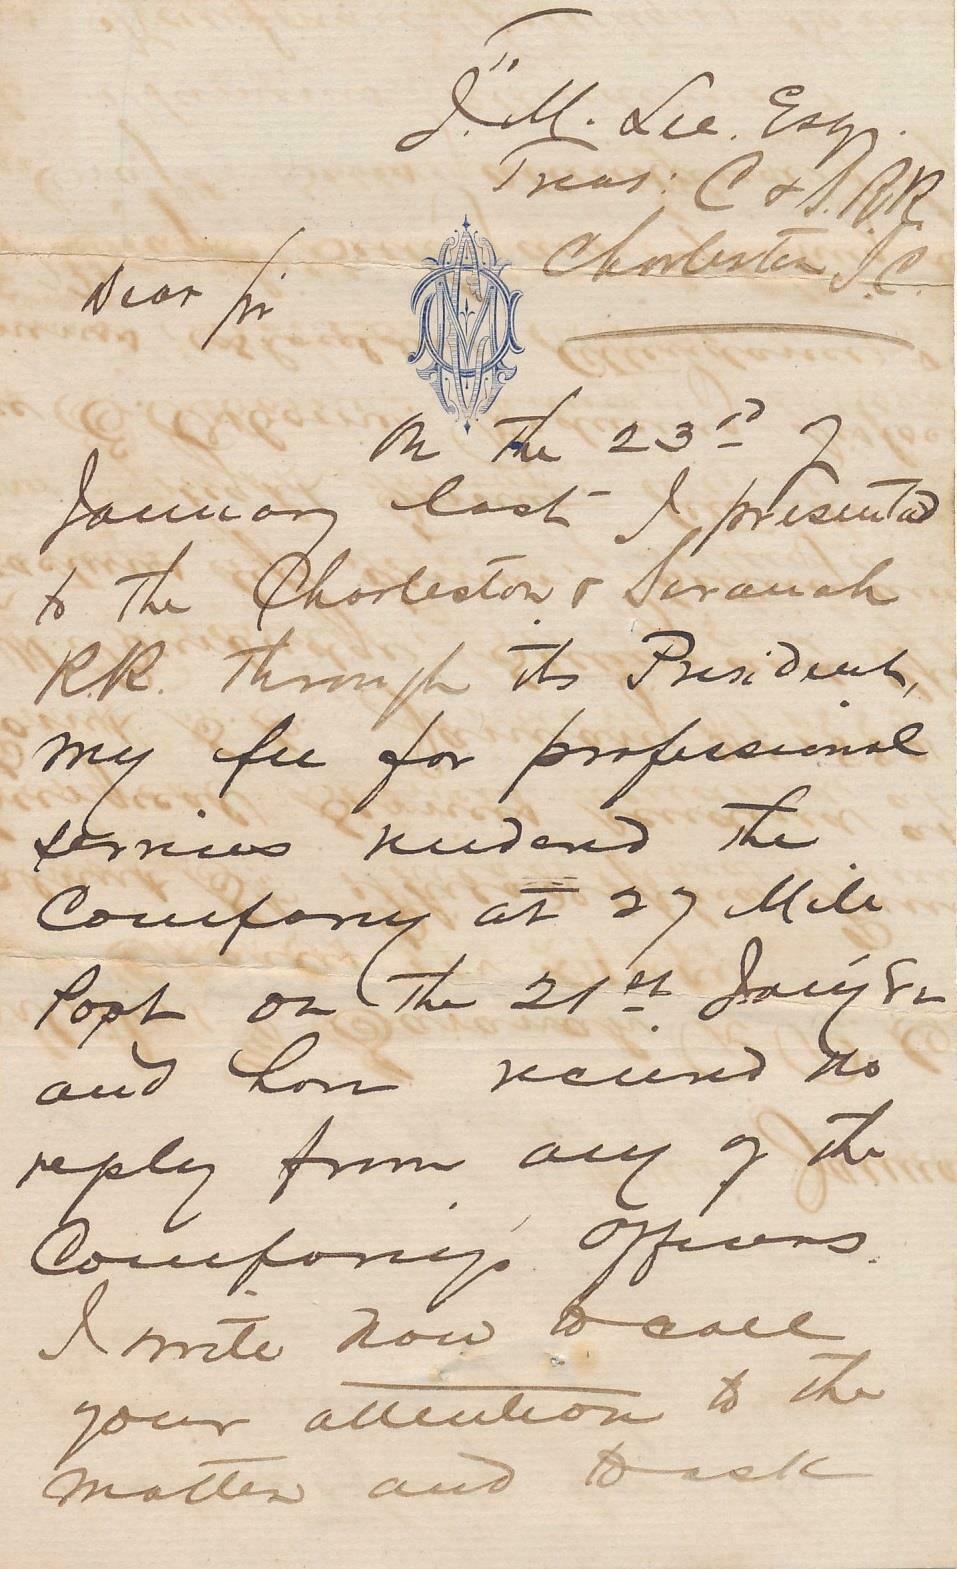 To
J. M. Lee. Esq.
Treas: C & S. R.R.
Charleston S.C.
Dear Sir
On the 23rd of
January last I presented
to the Charleston & Savanah
R.R. through its President,
my fee for professional
services rendered the
Company at 27 Mile
Post on the 21st Jany 82
and have received no
reply from any of the
Company's Officers.
I write now to call
your attention to the
matter and to ask